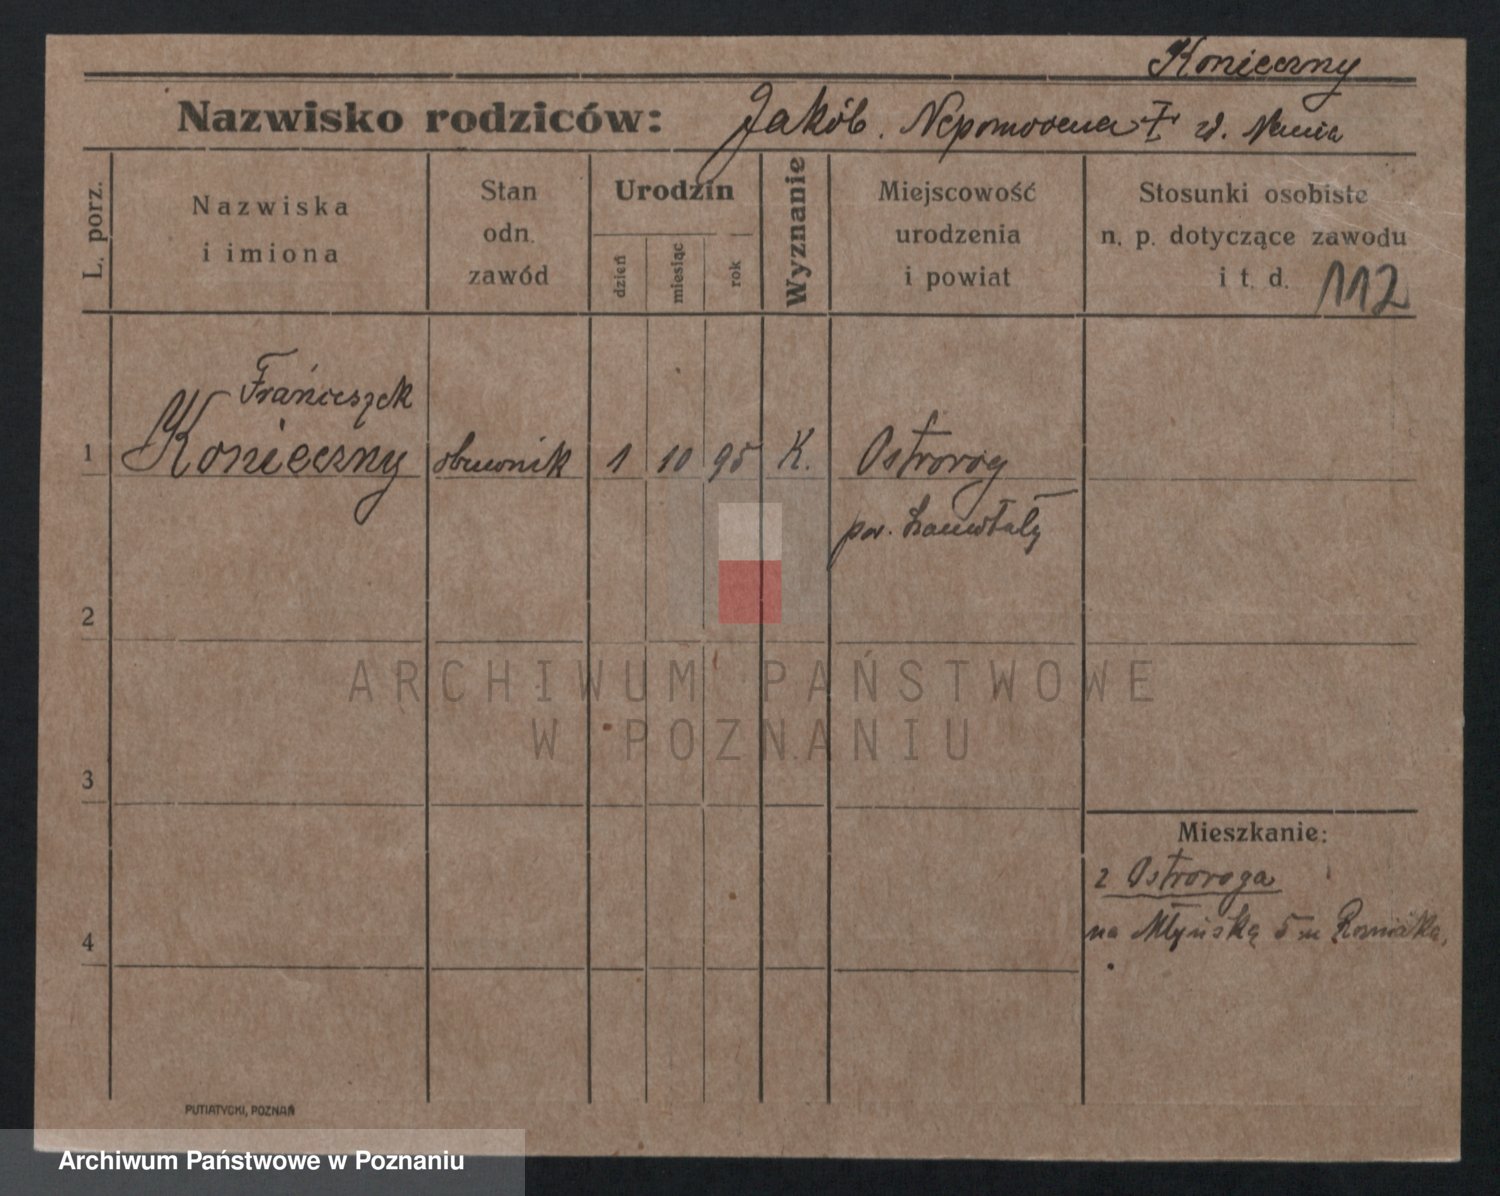 Konieczny
Nazwisko rodziców: Jakób. Nepomocena
L. porz.
Nazwiska
i imiona
Stan
odn.
zawód
Urodzin
dzień
miesiąc
rok
Wyznanie
Miejscowość
urodzenia
i powiat
Stosunki osobiste
n. p. dotyczące zawodu
i t. d. 112
Frańciszek
1 Konieczny obuwnik 1 10 95 K. Ostroróg
pow.
2
ARCHIWUM PAŃSTWOWE
W POZNANIU
3
Mieszkanie:
z Ostroroga
4 na Młyńską 5
PUTIATYCKI, POZNAŃ
Archiwum Państwowe w Poznaniu